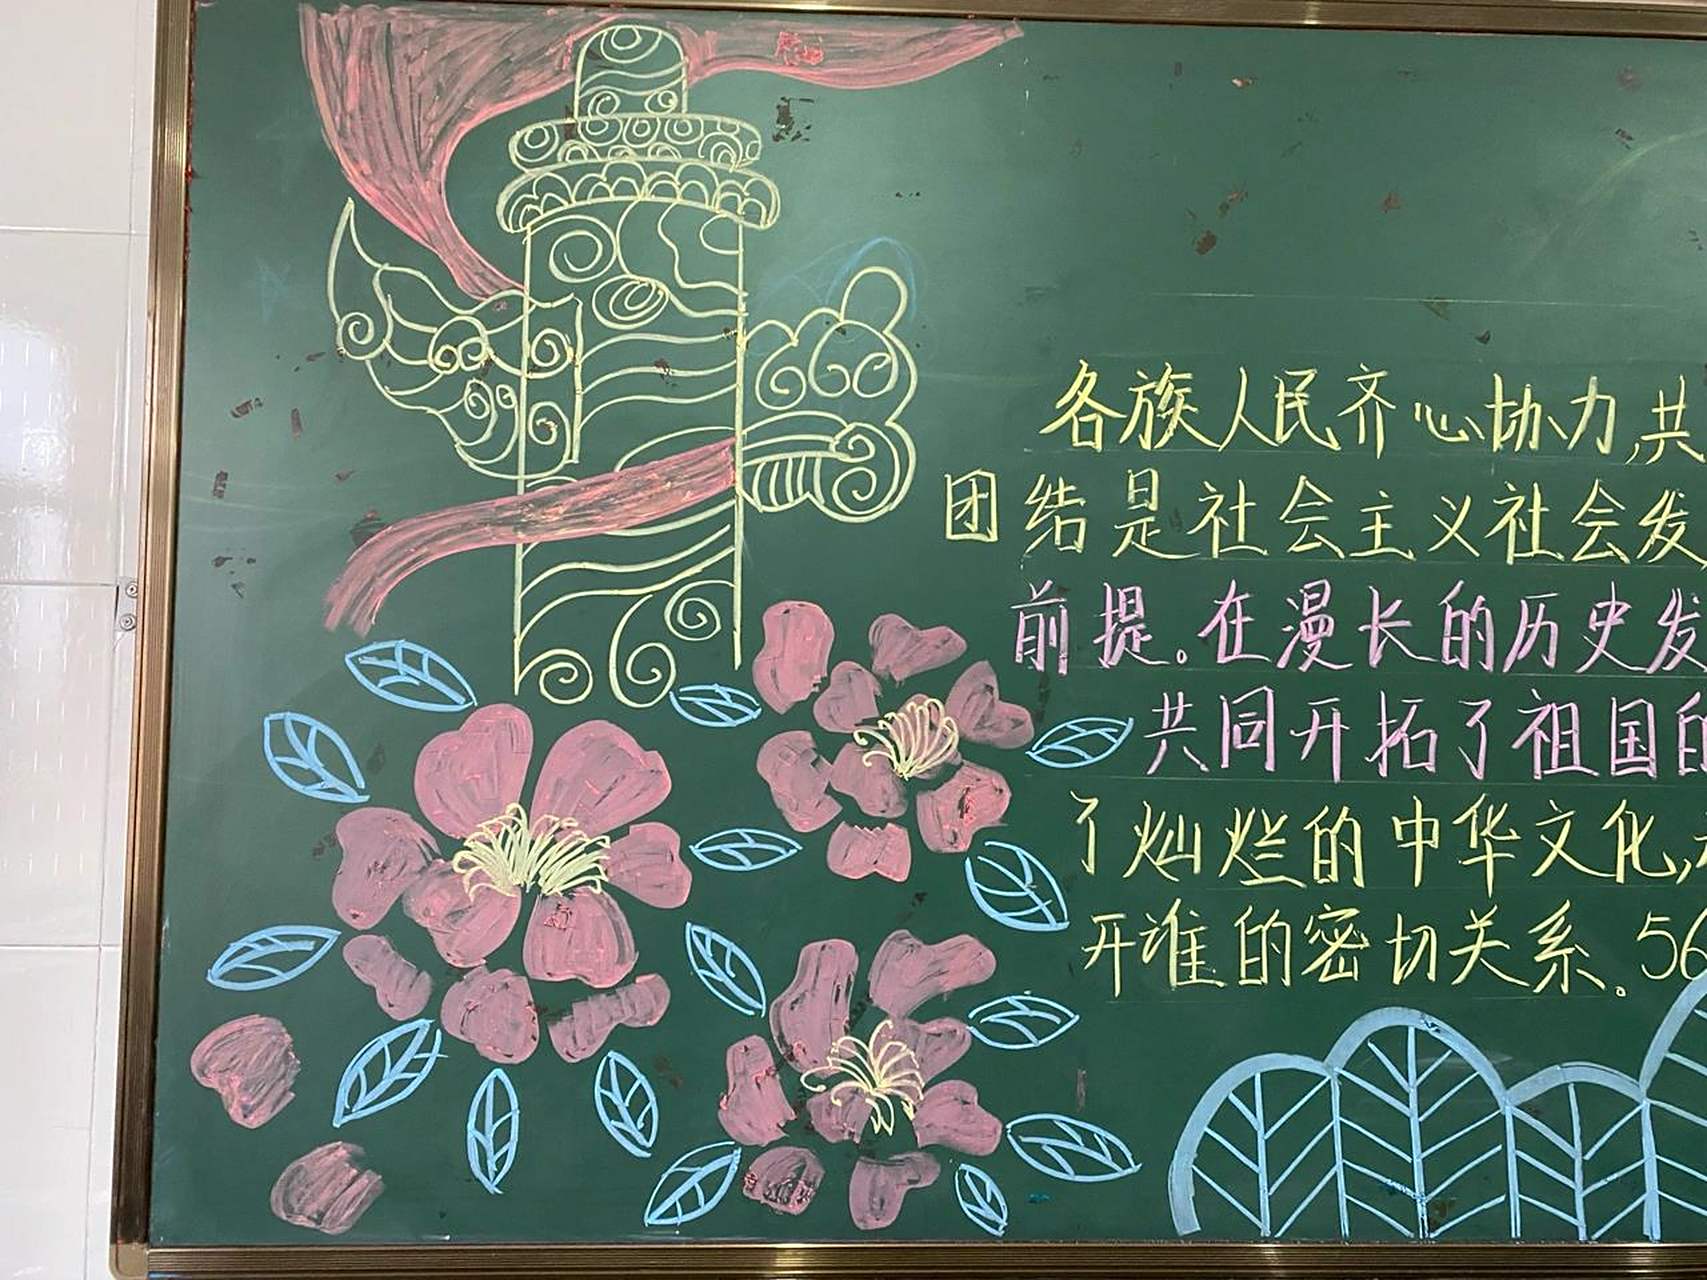 各族人民齐心协力,共
团结是社会主义社会发
前提。在漫长的历史发
共同开拓了祖国的
了灿烂的中华文化,
开谁的密切关系。56